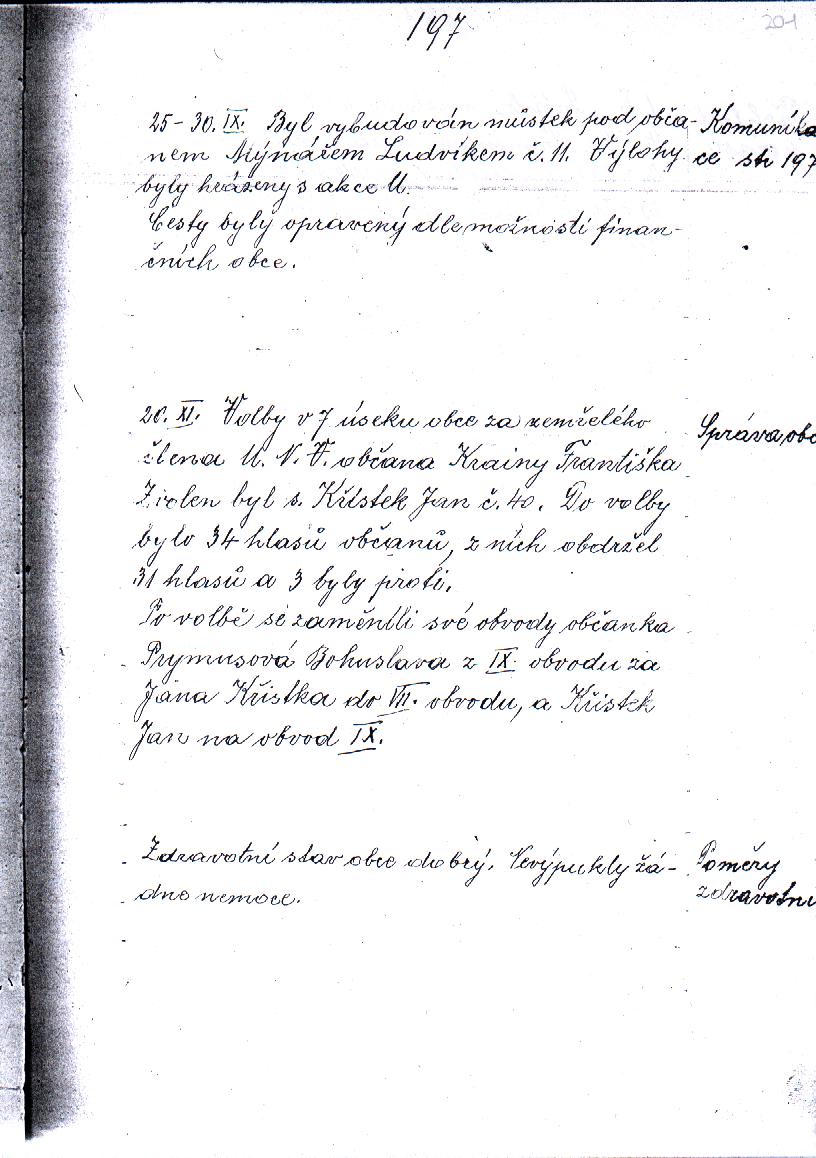 197
201
25-30. IX. Byl vybudován můstek pod obča-
nem Mýnářem Ludvíkem č. 11. Výlohy
byly hrázeny s akce U.
Cesty byly opraveny dle možnosti finan-
čních obce.
Komunika
ce str 197
20. XI. Volby v 7 úseku obce za zemřelého
člena M. N. V. občana Krainy Františka
Zvolen byl s. Křístek Jan č. 40. Do volby
bylo 34 hlasů občanů, z nich obdržel
31 hlasů a 3 byly proti.
Po volbě se zaměnili své obvody občanka
Prymusová Bohuslava z IX. obvodu za
Jana Křistka do VII. obvodu, a Křistek
Jan na obvod IX.
Správa obc
Zdravotní stav obce dobrý. Nevýpukly žá-
dne nemoce.
Poměry
zdravotni